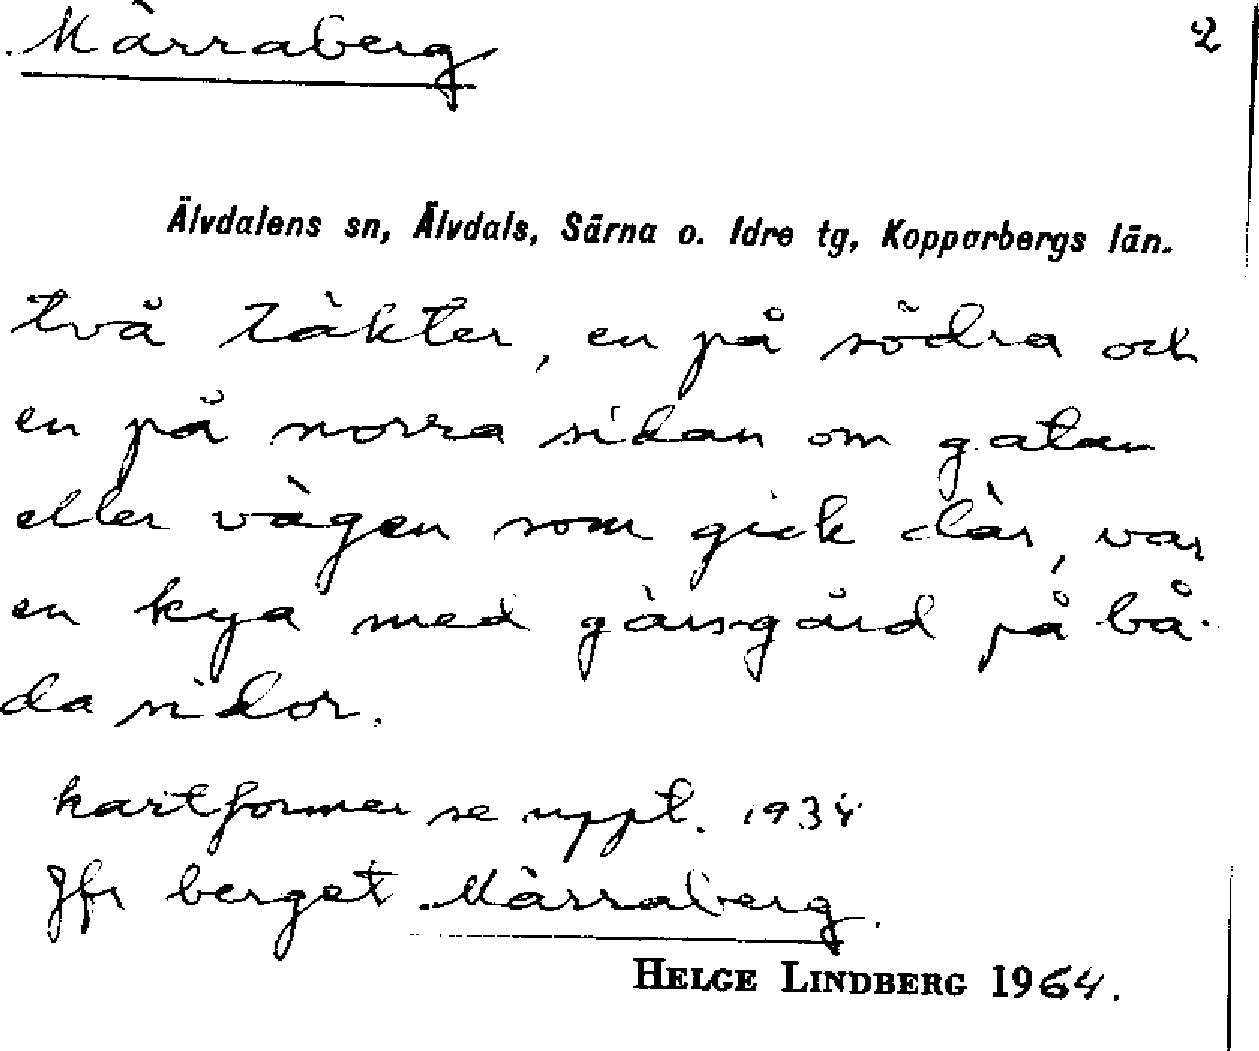 Märraberg 2
Älvdalens sn, Älvdals, Särna o. Idre tg, Kopparbergs län.
två täkter, en på södra och
en på norra sidan om gatan
eller vägen som gick där, var
en kya med gärsgård på bå-
da sidor.
kartformen se uppt. 1934
Jfr berget Märraberg.
HELGE LINDBERG 1964.